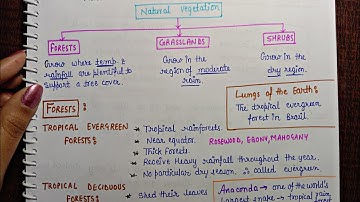 Natural Vegetation
FORESTS
Grow where temp. &
rainfall are plentiful to
support a tree cover.
GRASSLANDS
Grow in the
region of moderate
rain.
SHRUBS
Grow in the
dry region.
FORESTS:
Lungs of the Earth:
The tropical evergreen
forest in Brazil.
TROPICAL EVERGREEN
FORESTS:
* Tropical rainforests.
* Near equator.
* Thick Forests.
* Receive Heavy rainfall throughout the year.
* No particular dry season ∴ called evergreen
ROSEWOOD, EBONY, MAHOGANY
TROPICAL DECIDUOUS
FORESTS:
* Shed their leaves
Anaconda → one of the world's
largest snake → tropical rain